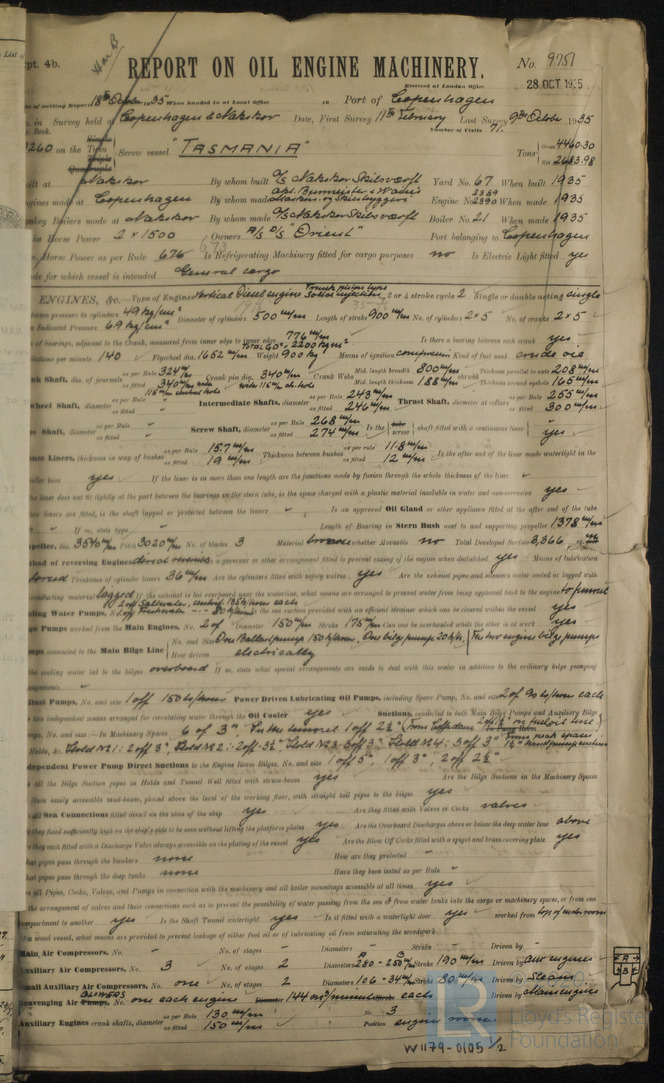 List
pt. 4b.
REPORT ON OIL ENGINE MACHINERY.
No. 9751
Received at London Office
28 OCT 1935
18th October 1935 When handed in at Local Office 19 Port of Copenhagen
in Survey held at Copenhagen & Nakskov Date, First Survey 11th February Last Survey 9th October 1935
Book. Number of Visits 71.
260 on the Twin Screw vessel "TASMANIA" Tons Gross 4460.30
Net 2683.98
built at Nakskov By whom built A/S Nakskov Skibsværft Yard No. 67 When built 1935
Engines made at Copenhagen By whom made Akt. Burmeister & Wain's Maskin- og Skibsbyggeri Engine No. 2389 2390 When made 1935
Donkey Boilers made at Nakskov By whom made A/S Nakskov Skibsværft Boiler No. 21 When made 1935
Horse Power 2 x 1500 Owners A/S D/S "Orient" Port belonging to Copenhagen
Horse Power as per Rule 676 673 Is Refrigerating Machinery fitted for cargo purposes no Is Electric Light fitted yes
for which vessel is intended General cargo
ENGINES, &c.—Type of Engines Vertical Diesel engine Trunk piston type Solid injection 2 or 4 stroke cycle 2 Single or double acting single
pressure in cylinders 49 kg/cm² Diameter of cylinders 500 m/m Length of stroke 900 m/m No. of cylinders 2x5 No. of cranks 2x5
Indicated Pressure 6.9 kg/cm²
of bearings, adjacent to the Crank, measured from inner edge to inner edge 776 m/m Is there a bearing between each crank yes
Revolutions per minute 140 Flywheel dia. 1652 m/m Weight 900 kg Means of ignition compression Kind of fuel used crude oil
Shaft, dia. of journals as per Rule 324 m/m as fitted 340 m/m Crank pin dia. 340 m/m Crank Webs Mid. length breadth 800 m/m Thickness parallel to axis 208 m/m
Mid. length thickness 188 m/m Thickness around eyehole 165 m/m
wheel Shaft, diameter as per Rule " as fitted " Intermediate Shafts, diameter as per Rule 243 m/m as fitted 246 m/m Thrust Shaft, diameter at collars as per Rule 255 m/m as fitted 300 m/m
Shaft, diameter as per Rule " as fitted " Screw Shaft, diameter as per Rule 268 m/m as fitted 274 m/m Is the screw shaft fitted with a continuous liner yes
Liners, thickness in way of bushes as per Rule 15.7 m/m as fitted 19 m/m Thickness between bushes as per rule 11.8 m/m as fitted 12 m/m Is the after end of the liner made watertight in the
boss yes If the liner is in more than one length are the junctions made by fusion through the whole thickness of the liner "
the liner does not fit tightly at the part between the bearings in the stern tube, is the space charged with a plastic material insoluble in water and non-corrosive yes
liners are fitted, is the shaft lapped or protected between the liners " Is an approved Oil Gland or other appliance fitted at the after end of the tube
If so, state type " Length of Bearing in Stern Bush next to and supporting propeller 1378 m/m
Propeller, dia. 3540 m/m Pitch 3020 m/m No. of blades 3 Material bronze whether Moveable no Total Developed Surface 3,366
Method of reversing Engines direct reverse Is a governor or other arrangement fitted to prevent racing of the engine when declutched yes Means of lubrication
forced Thickness of cylinder liners 36 m/m Are the cylinders fitted with safety valves yes Are the exhaust pipes and silencers water cooled or lagged with
lagged If the exhaust is led overboard near the waterline, what means are arranged to prevent water being syphoned back to the engine to funnel
yes
Pumps worked from the Main Engines, No. 2 of Diameter 150 m/m Stroke 175 m/m Can one be overhauled while the other is at work yes
Pumps connected to the Main Bilge Line No. and Size One Ballast pump 150 t/hour, One bilge pump 20 t/h, The two engine bilge pumps
How driven electrically
the cooling water led to the bilges overboard If so, state what special arrangements are made to deal with this water in addition to the ordinary bilge pumping
arrangements "
Ballast Pumps, No. and size 1 off 150 ts/hour Power Driven Lubricating Oil Pumps, including Spare Pump, No. and size 2 of 90 ts/hour each
two independent means arranged for circulating water through the Oil Cooler yes Suctions, connected to both Main Bilge Pumps and Auxiliary Bilge
Pumps, No. and size:—In Machinery Spaces 6 of 3" In the tunnel 1 off 2½"
Holds, &c. Hold No 1: 2 off 3" Hold No 2: 2 off 3½" Hold No 3: 3 off 3" Hold No 4: 3 off 3"
Independent Power Pump Direct Suctions to the Engine Room Bilges, No. and size 1 off 5", 1 off 3", 2 off 2½"
all the Bilge Suction pipes in Holds and Tunnel Well fitted with strum-boxes yes Are the Bilge Suctions in the Machinery Spaces
from easily accessible mud-boxes, placed above the level of the working floor, with straight tail pipes to the bilges yes
all Sea Connections fitted direct on the skin of the ship yes Are they fitted with Valves or Cocks valves
they fixed sufficiently high on the ship's side to be seen without lifting the platform plates yes Are the Overboard Discharges above or below the deep water line above
they each fitted with a Discharge Valve always accessible on the plating of the vessel yes Are the Blow Off Cocks fitted with a spigot and brass covering plate yes
What pipes pass through the bunkers none How are they protected "
What pipes pass through the deep tanks none Have they been tested as per Rule "
all Pipes, Cocks, Valves, and Pumps in connection with the machinery and all boiler mountings accessible at all times yes
the arrangement of valves and their connections such as to prevent the possibility of water passing from the sea or from water tanks into the cargo or machinery spaces, or from one
compartment to another yes Is the Shaft Tunnel watertight yes Is it fitted with a watertight door yes worked from top of motor room
a wood vessel, what means are provided to prevent leakage of either fuel oil or of lubricating oil from saturating the woodwork
Main Air Compressors, No. - No. of stages - Diameters - Stroke - Driven by -
Auxiliary Air Compressors, No. 3 No. of stages 2 Diameters 280-250 m/m Stroke 190 m/m Driven by aux engines
Small Auxiliary Air Compressors, No. one No. of stages 2 Diameters 106-34 m/m Stroke 80 m/m Driven by steam
Scavenging Air BLOWERS Pumps, No. one each engine 144 m³/minute each Driven by Main engine
Auxiliary Engines crank shafts, diameter as per Rule 130 m/m as fitted 150 m/m No. 3
Position engine room
A
B
LR
Lloyd's Register
Foundation
W1179-0105 1/2